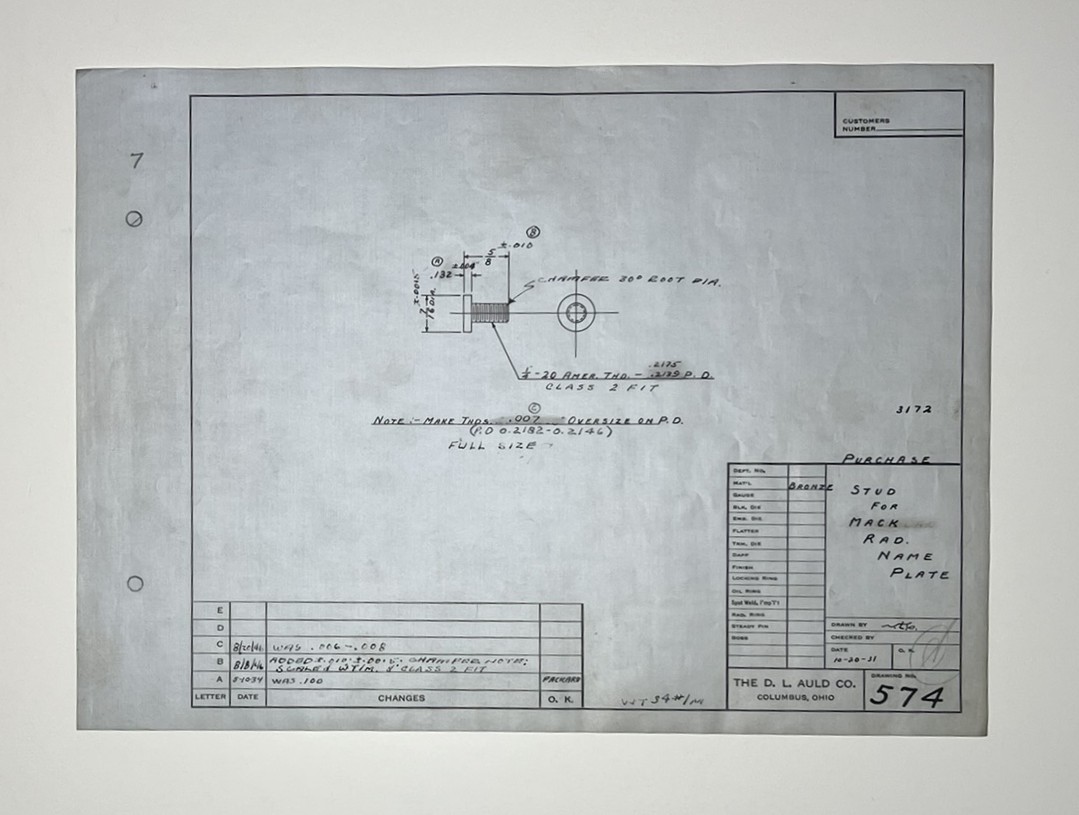 CUSTOMERS
NUMBER
7
B
±.010
5/8
A
±.004
.132
±.0015
7/16 DIA.
CHAMFER 30° ROOT DIA.
1/4-20 AMER. THD. - .2175
.2139 P.D.
CLASS 2 FIT
C
NOTE:- MAKE THDS. .007 OVERSIZE ON P.D.
(P.D 0.2182-0.2146)
FULL SIZE
3172
PURCHASE
DEPT. NO.
MAT'L BRONZE
GAUGE
BLK. DIE
EMB. DIE
FLATTER
TRM. DIE
DAPP
FINISH
LOCKING RING
OIL RING
Spot Weld, Proj't'l
RAD. RING
STEADY PIN
BOSS
STUD
FOR
MACK
RAD.
NAME
PLATE
DRAWN BY
CHECKED BY
DATE
10-20-31
O. K.
THE D. L. AULD CO.
COLUMBUS, OHIO
DRAWING NO.
574
E
D
C 8/20/46 WAS .006-.008
B 8/8/46 ADDED ±.010 ±.0015; CHAMFER NOTE;
& CLASS 2 FIT
A WAS .100 PACKARD
LETTER DATE CHANGES O. K.
WT 34#/M